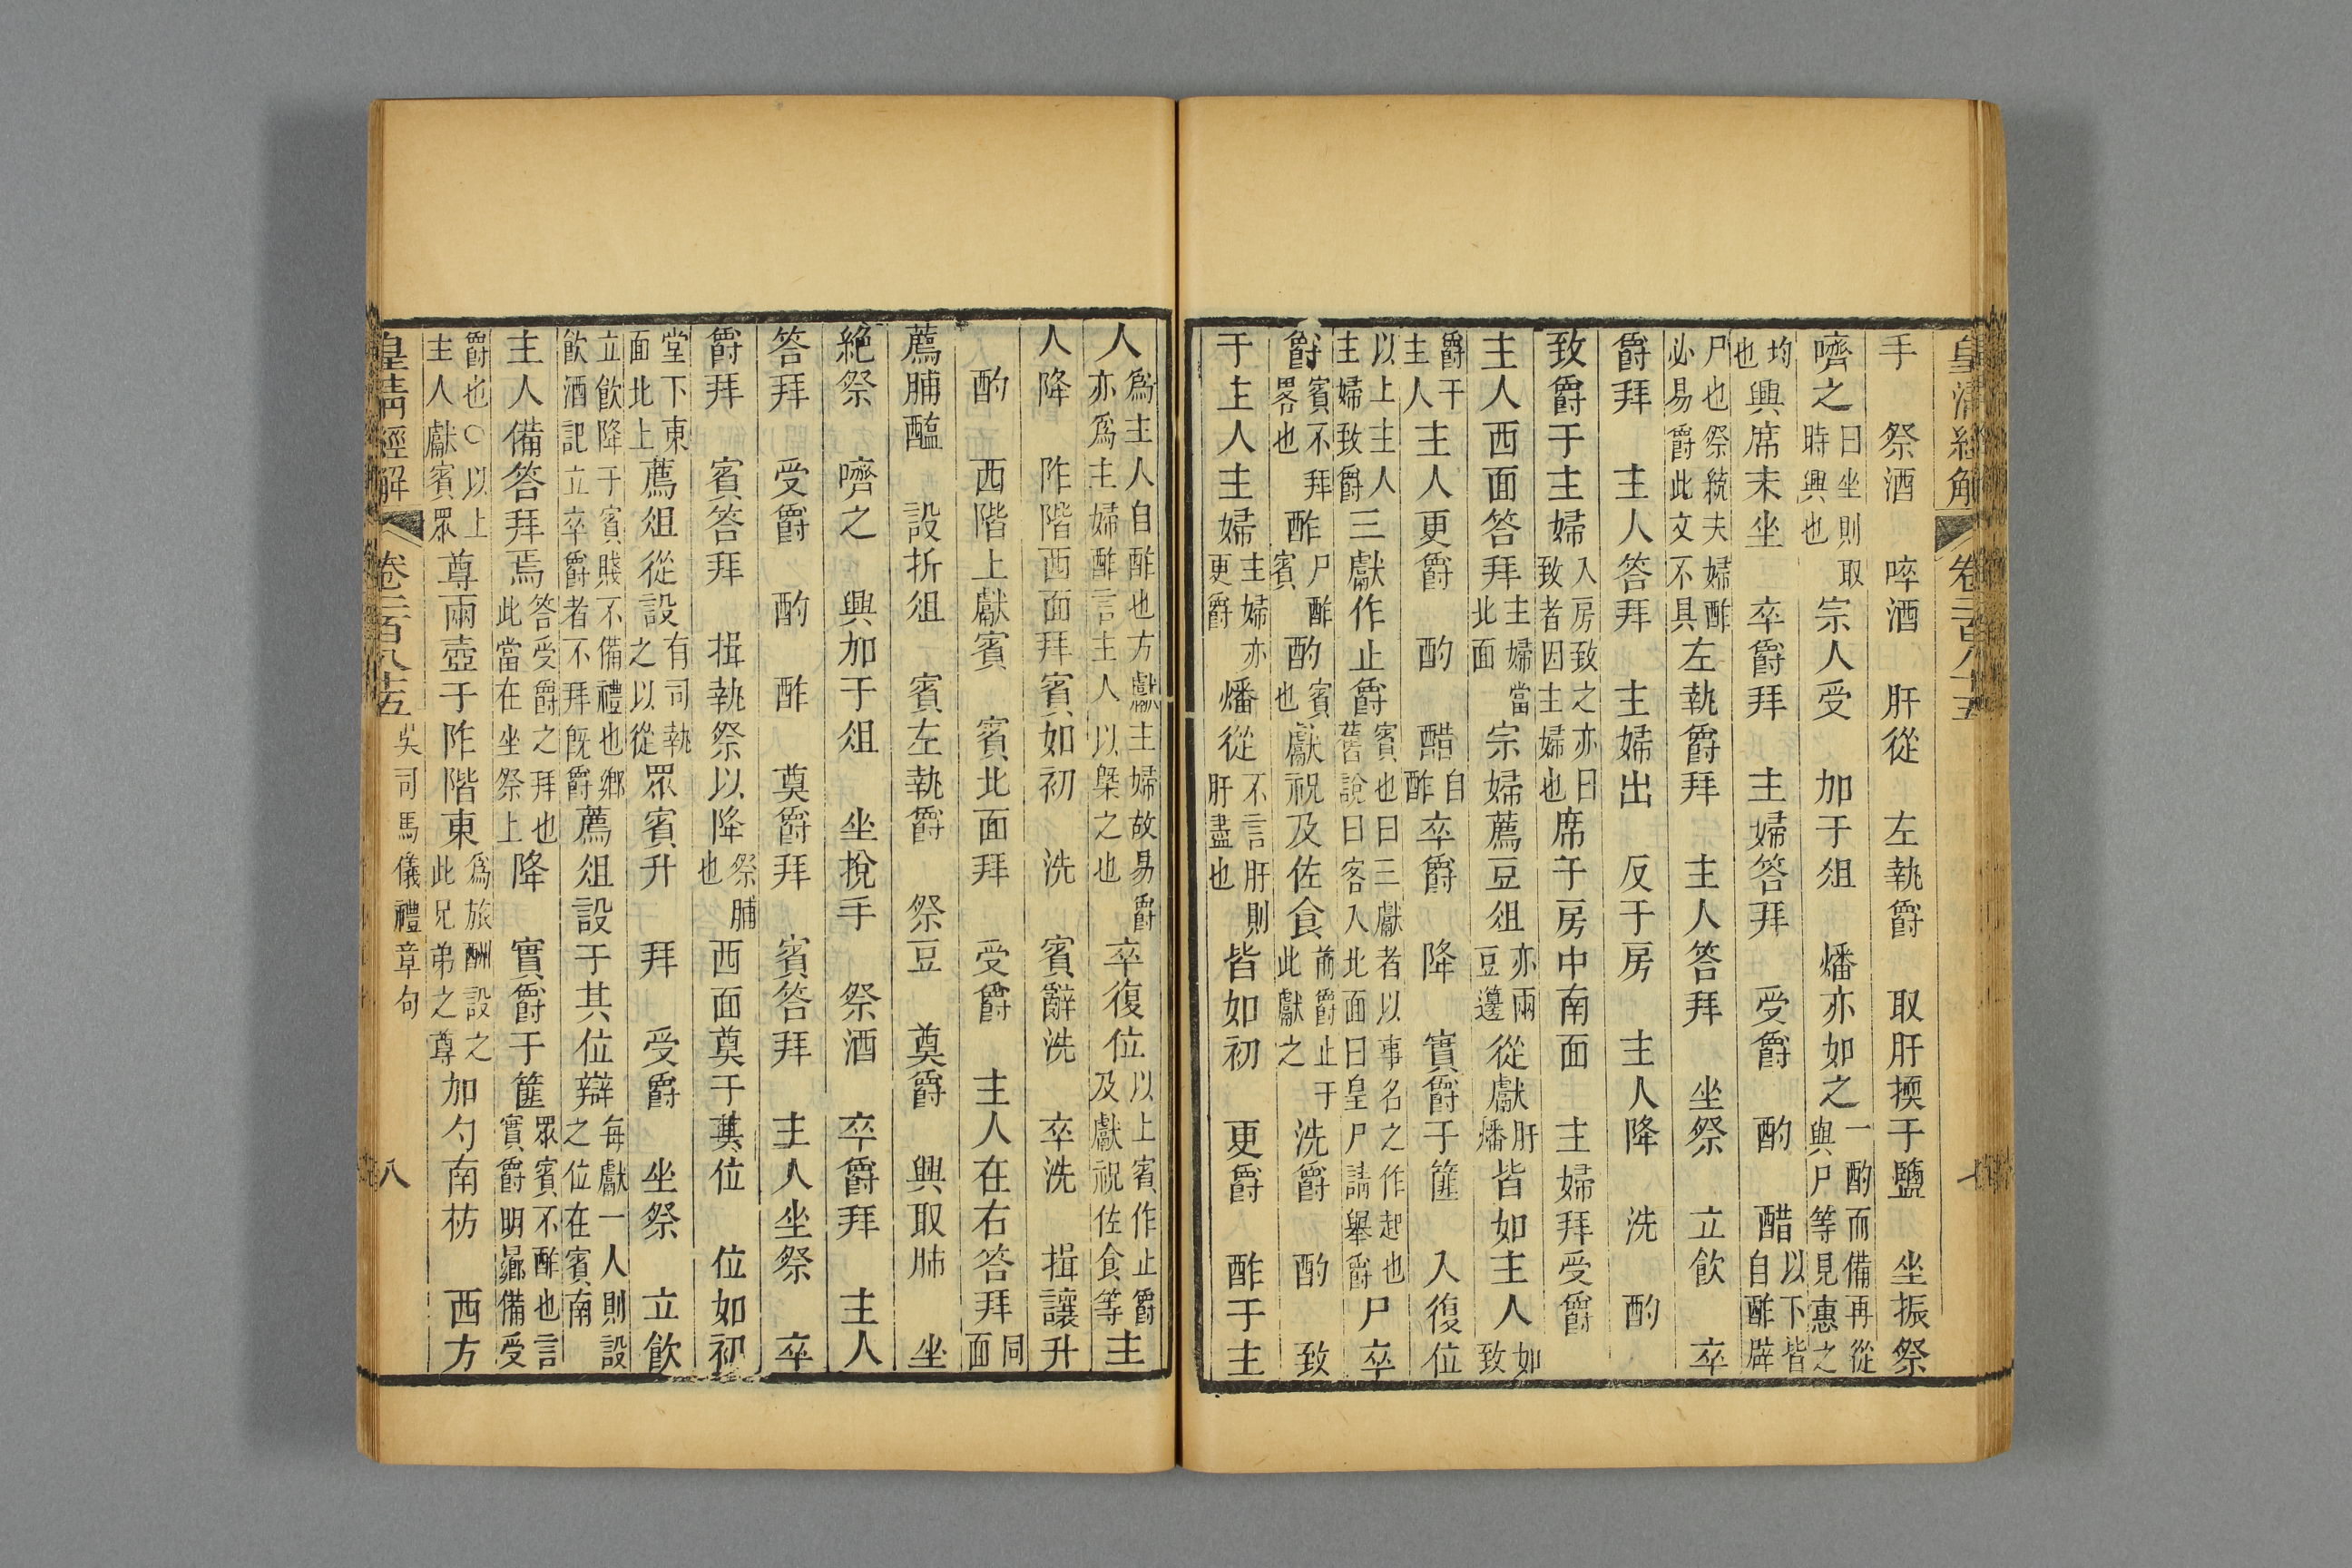 皇清經解 卷二百八十五 七
手 祭酒 啐酒 肝從 左執爵 取肝擩于鹽 坐振祭
嚌之 日坐則取時興也 宗人受 加于俎 燔亦如之 一酌而備再從與尸等見惠之
均也 興席末坐 卒爵拜 主婦答拜 受爵 酌 醋 以下皆自酢辟
尸也祭統夫婦酢必易爵此文不具 左執爵拜 主人答拜 坐祭 立飲 卒
爵拜 主人答拜 主婦出 反于房 主人降 洗 酌
致爵于主婦 入房致之亦曰致者因主婦也 席于房中南面 主婦拜受爵
主人西面答拜 主婦當北面 宗婦薦豆俎 亦兩豆籩 從獻 肝燔 皆如主人 如致
爵于主人 主人更爵 酌 醋 自酢 卒爵 降 實爵于篚 入復位
以上主人主婦致爵 三獻作止爵 賓也曰三獻者以事名之作起也舊說曰客入北面曰皇尸請舉爵 尸卒
爵 賓不拜畧也 酢 尸酢賓 酌 賓也 獻祝及佐食 前爵止于此獻之 洗爵 酌 致
于主人主婦 主婦亦更爵 燔從 不言肝則肝盡也 皆如初 更爵 酢于主
人 爲主人自酢也方獻主婦故易爵亦爲主婦酢言主人以槩之也 卒復位 以上賓作止爵及獻祝佐食等 主
人降 阼階西面拜賓如初 洗 賓辭洗 卒洗 揖讓升
酌 西階上獻賓 賓北面拜 受爵 主人在右答拜 同面
薦脯醢 設折俎 賓左執爵 祭豆 奠爵 興取肺 坐
絶祭 嚌之 興加于俎 坐挩手 祭酒 卒爵拜 主人
答拜 受爵 酌 酢 奠爵拜 賓答拜 主人坐祭 卒
爵拜 賓答拜 揖 執祭以降 祭脯也 西面奠于其位 位如初
堂下東面北上 薦俎從設 有司執之以從 眾賓升 拜 受爵 坐祭 立飲
立飲降于賓賤不備禮也鄉飲酒記立卒爵者不拜既爵 薦俎設于其位辯 每獻一人則設之位在賓南
主人備答拜焉 答受爵之拜也此當在坐祭上 降 實爵于篚 眾賓不酢也言實爵明屬備受
爵也○以上主人獻賓眾 尊兩壺于阼階東 爲旅酬設之此兄弟之尊 加勺南枋 西方
皇清經解 卷二百八十五 吳司馬儀禮章句 八